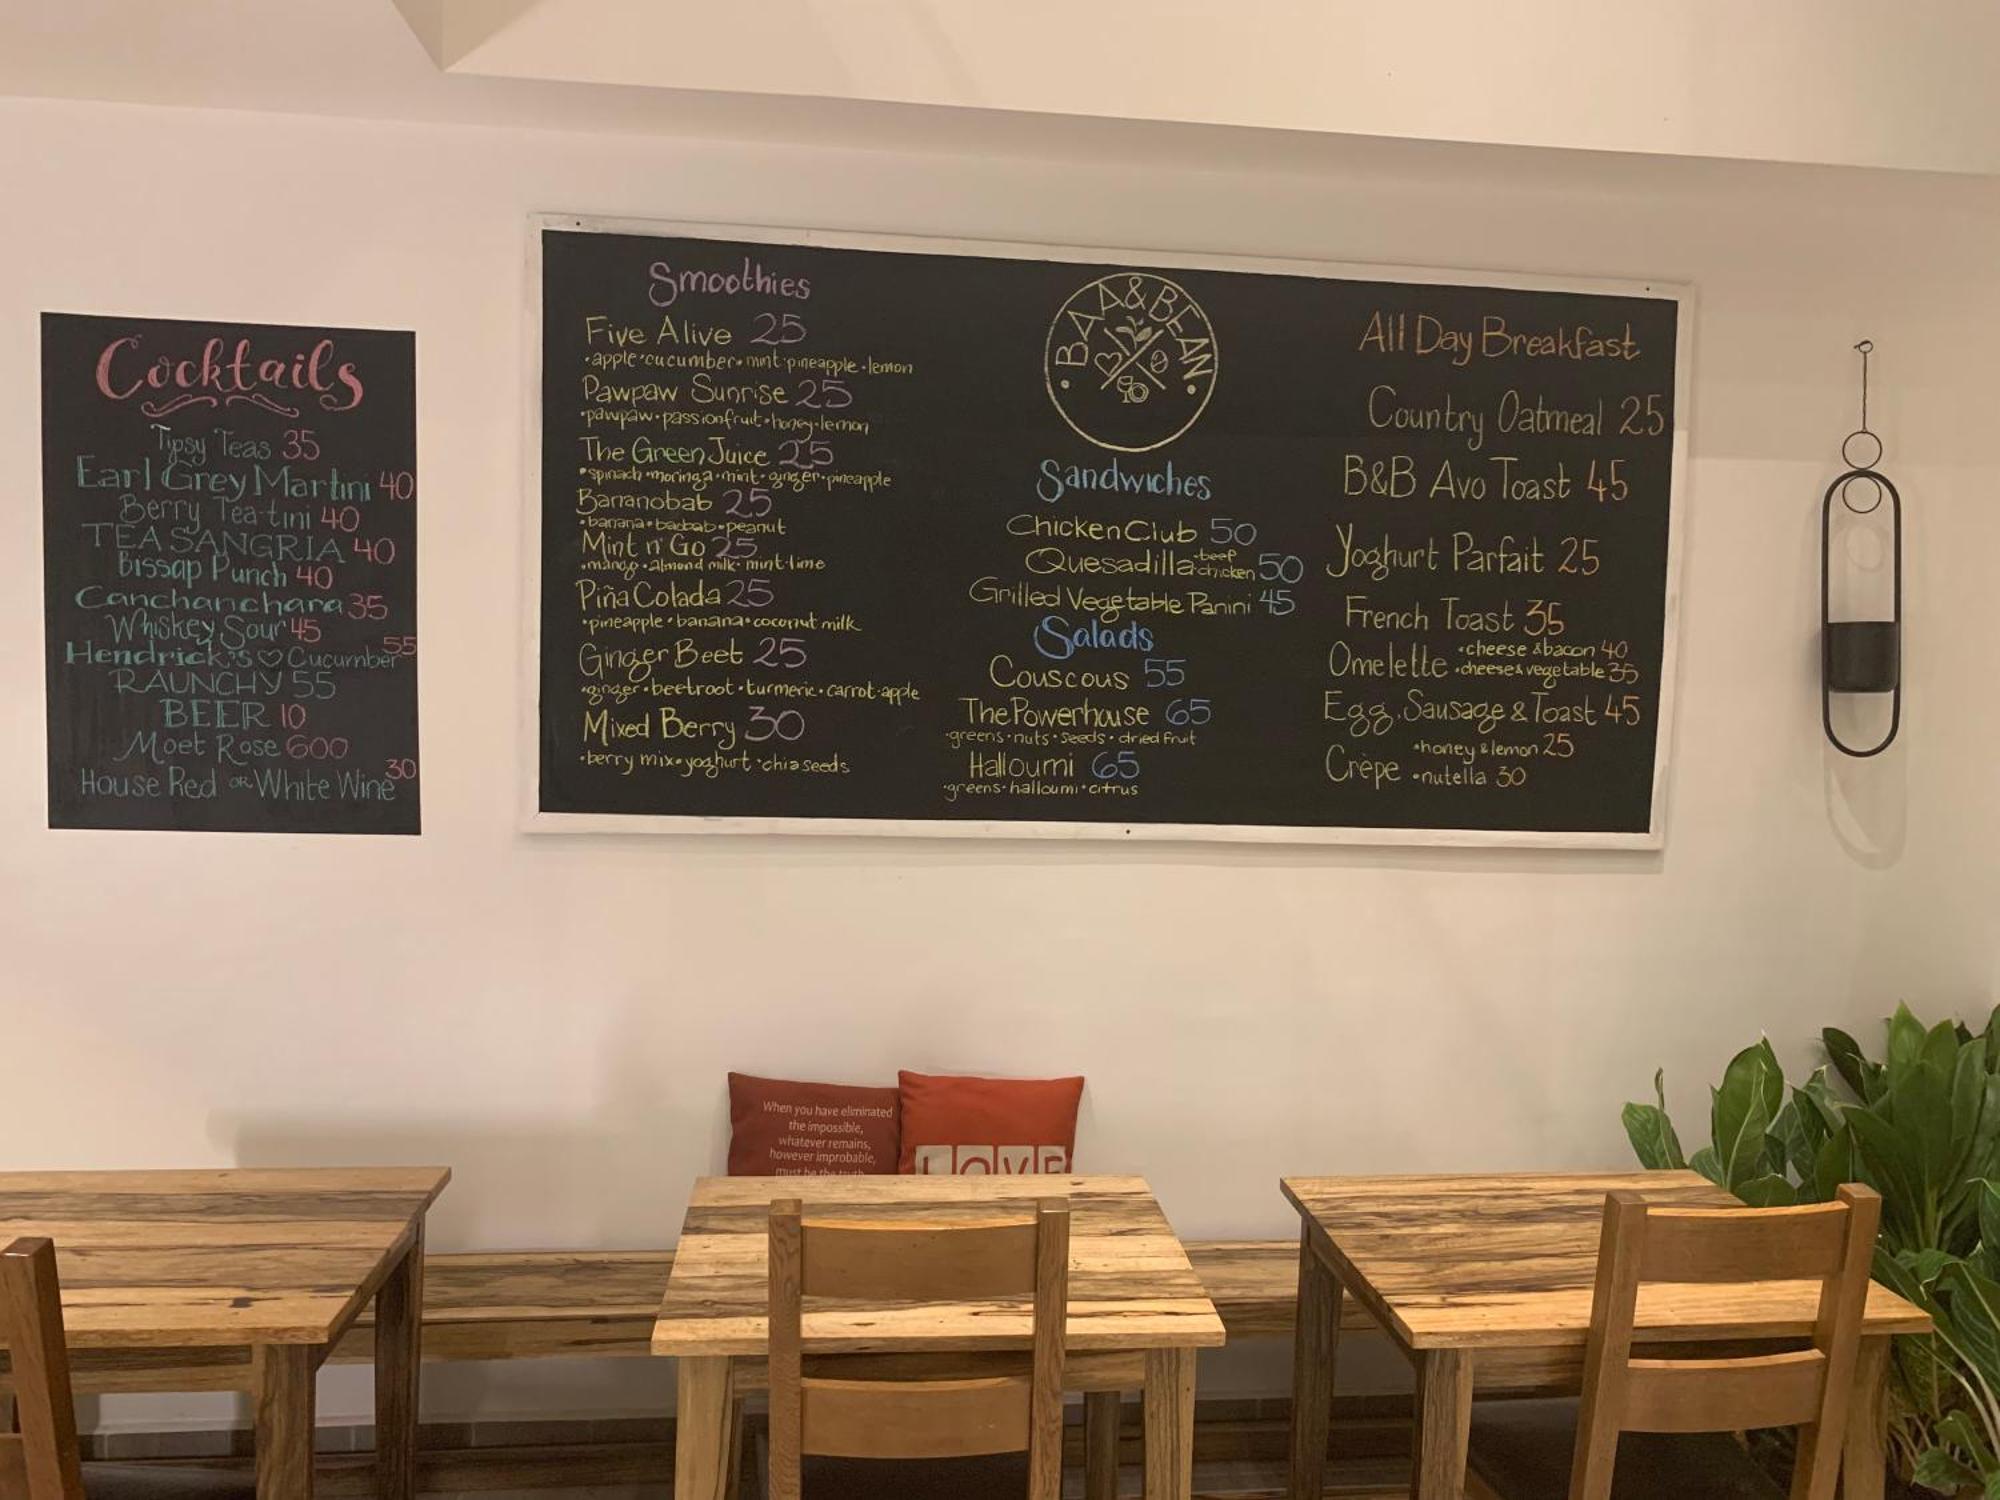 Cocktails
Tipsy Teas 35
Earl Grey Martini 40
Berry Tea-tini 40
TEA SANGRIA 40
Bissap Punch 40
Canchanchara 35
Whiskey Sour 45
Hendrick's ♡ Cucumber 55
RAUNCHY 55
BEER 10
Moet Rose 600
House Red OR White Wine 30
Smoothies
Five Alive 25
•apple•cucumber•mint•pineapple•lemon
Pawpaw Sunrise 25
•pawpaw•passionfruit•honey•lemon
The Green Juice 25
•spinach•moringa•mint•ginger•pineapple
Bananobab 25
•banana•baobab•peanut
Mint n' Go 25
•mango•almond milk•mint•lime
Piña Colada 25
•pineapple•banana•coconut milk
Ginger Beet 25
•ginger•beetroot•turmeric•carrot•apple
Mixed Berry 30
•berry mix•yoghurt•chia seeds
BAA & BEAN
Sandwiches
Chicken Club 50
Quesadilla •beef •chicken 50
Grilled Vegetable Panini 45
Salads
Couscous 55
The Powerhouse 65
•greens•nuts•seeds•dried fruit
Halloumi 65
•greens•halloumi•citrus
All Day Breakfast
Country Oatmeal 25
B&B Avo Toast 45
Yoghurt Parfait 25
French Toast 35
Omelette •cheese & bacon 40
•cheese & vegetable 35
Egg, Sausage & Toast 45
Crêpe •honey & lemon 25
•nutella 30
When you have eliminated
the impossible,
whatever remains,
however improbable,
must be the truth
LOVE